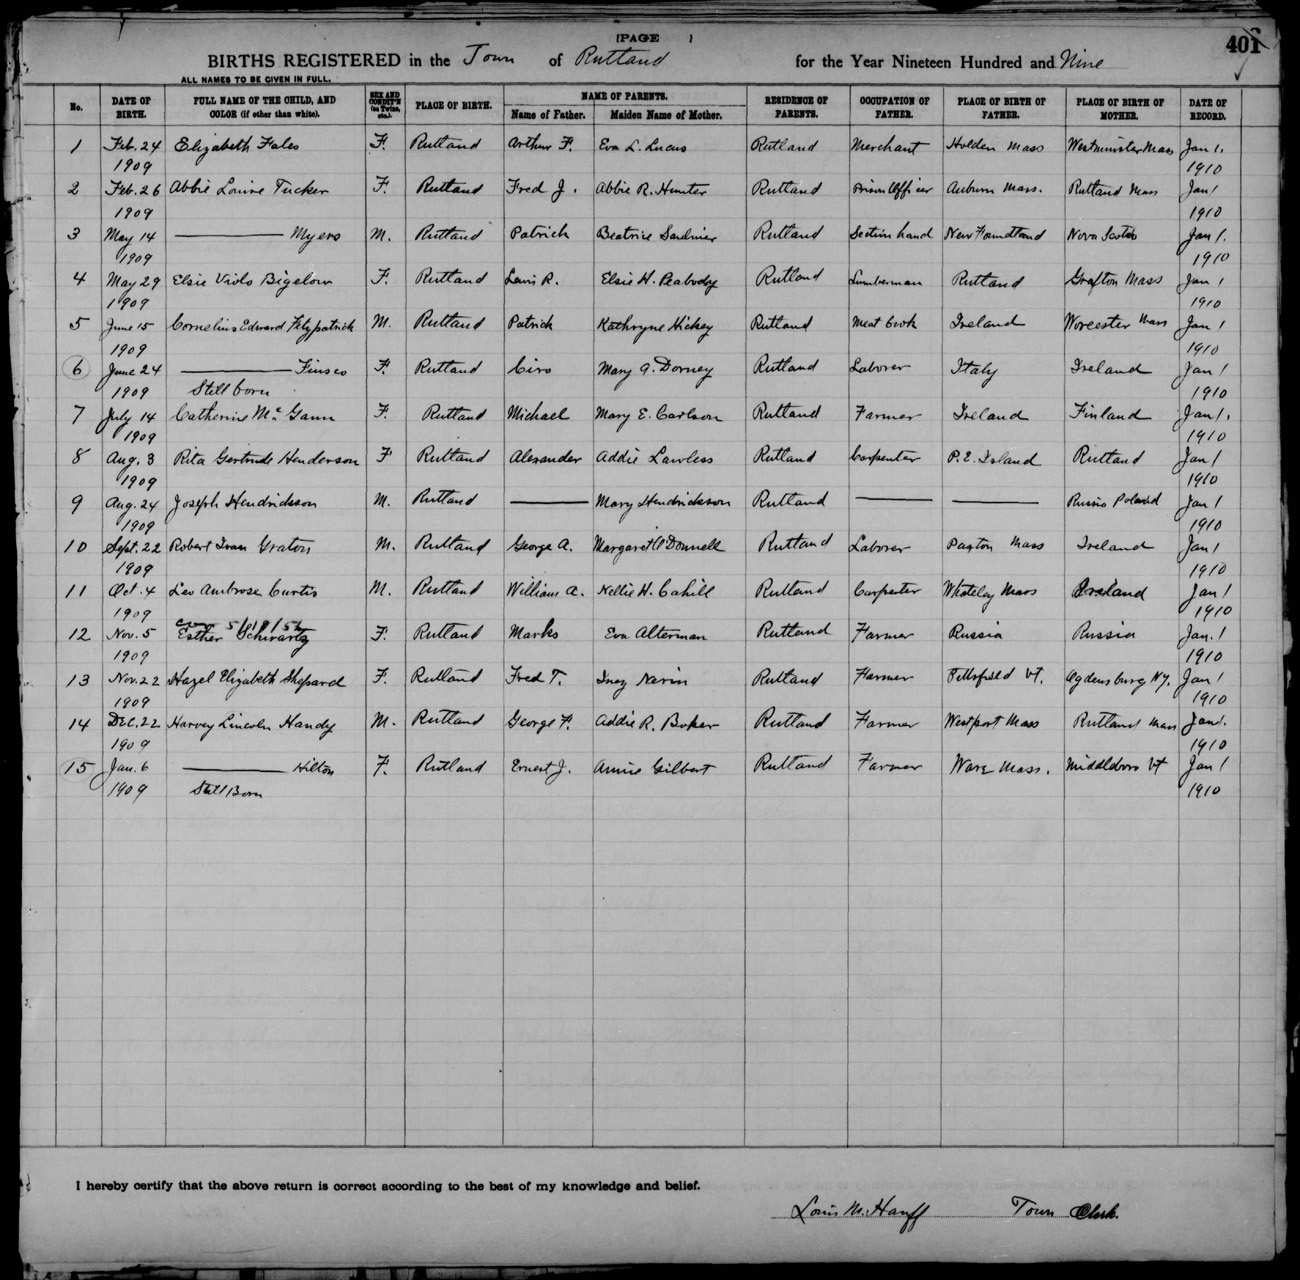 [PAGE ]
401
BIRTHS REGISTERED in the Town of Rutland for the Year Nineteen Hundred and Nine
ALL NAMES TO BE GIVEN IN FULL.
No. DATE OF BIRTH. FULL NAME OF THE CHILD, AND COLOR (if other than white). SEX AND CONDIT'N (as Twins, etc.) PLACE OF BIRTH. NAME OF PARENTS. Name of Father. Maiden Name of Mother. RESIDENCE OF PARENTS. OCCUPATION OF FATHER. PLACE OF BIRTH OF FATHER. PLACE OF BIRTH OF MOTHER. DATE OF RECORD.
1 Feb. 24 Elizabeth Fales F. Rutland Arthur F. Eva L. Lucas Rutland Merchant Holden Mass Westminster Mass Jan 1.
1909 1910
2 Feb. 26 Abbie Louise Tucker F. Rutland Fred J. Abbie R. Hunter Rutland Prison Officer Auburn Mass. Rutland Mass Jan 1
1909 1910
3 May 14 Myers M. Rutland Patrick Beatrice Rutland Section hand New Foundland Nova Scotia Jan 1.
1909 1910
4 May 29 Elsie Viola Bigelow F. Rutland Lewis R. Elsie H. Peabody Rutland Lumberman Rutland Grafton Mass Jan 1
1909 1910
5 June 15 Cornelius Edward Fitzpatrick M. Rutland Patrick Kathryne Hickey Rutland Meat Cook Ireland Worcester Mass Jan 1
1909 1910
6 June 24 F. Rutland Ciro Mary A. Dorney Rutland Laborer Italy Ireland Jan 1
1909 Still born 1910
7 July 14 Catherine Mc Gann F. Rutland Michael Mary E. Carlson Rutland Farmer Ireland Finland Jan 1.
1909 1910
8 Aug. 3 Rita Gertrude Henderson F Rutland Alexander Addie Lawless Rutland Carpenter P.E. Island Rutland Jan 1
1909 1910
9 Aug. 24 Joseph Hendrickson M. Rutland Mary Hendrickson Rutland Russia Poland Jan 1
1909 1910
10 Sept. 22 Robert Ivan Graton M. Rutland George A. Margaret O'Donnell Rutland Laborer Paxton Mass Ireland Jan 1
1909 1910
11 Oct. 4 Leo Ambrose Curtis M. Rutland William A. Nellie H. Cahill Rutland Carpenter Whateley Mass Ireland Jan 1
1909 1910
5/19/52
12 Nov. 5 Esther Schwartz F. Rutland Marks Eva Alterman Rutland Farmer Russia Russia Jan. 1
1909 1910
13 Nov. 22 Hazel Elizabeth Shepard F. Rutland Fred T. Inez Rutland Farmer Pittsfield Vt. Ogdensburg NY. Jan 1
1909 1910
14 Dec. 22 Harvey Lincoln Handy M. Rutland George F. Addie R. Baker Rutland Farmer Westport Mass Rutland Mass Jan 1.
1909 1910
15 Jan. 6 Hilton F. Rutland Ernest J. Annie Gilbert Rutland Farmer Ware Mass. Middleboro Vt Jan 1
1909 Still Born 1910
I hereby certify that the above return is correct according to the best of my knowledge and belief.
Louis M. Hanff Town Clerk.